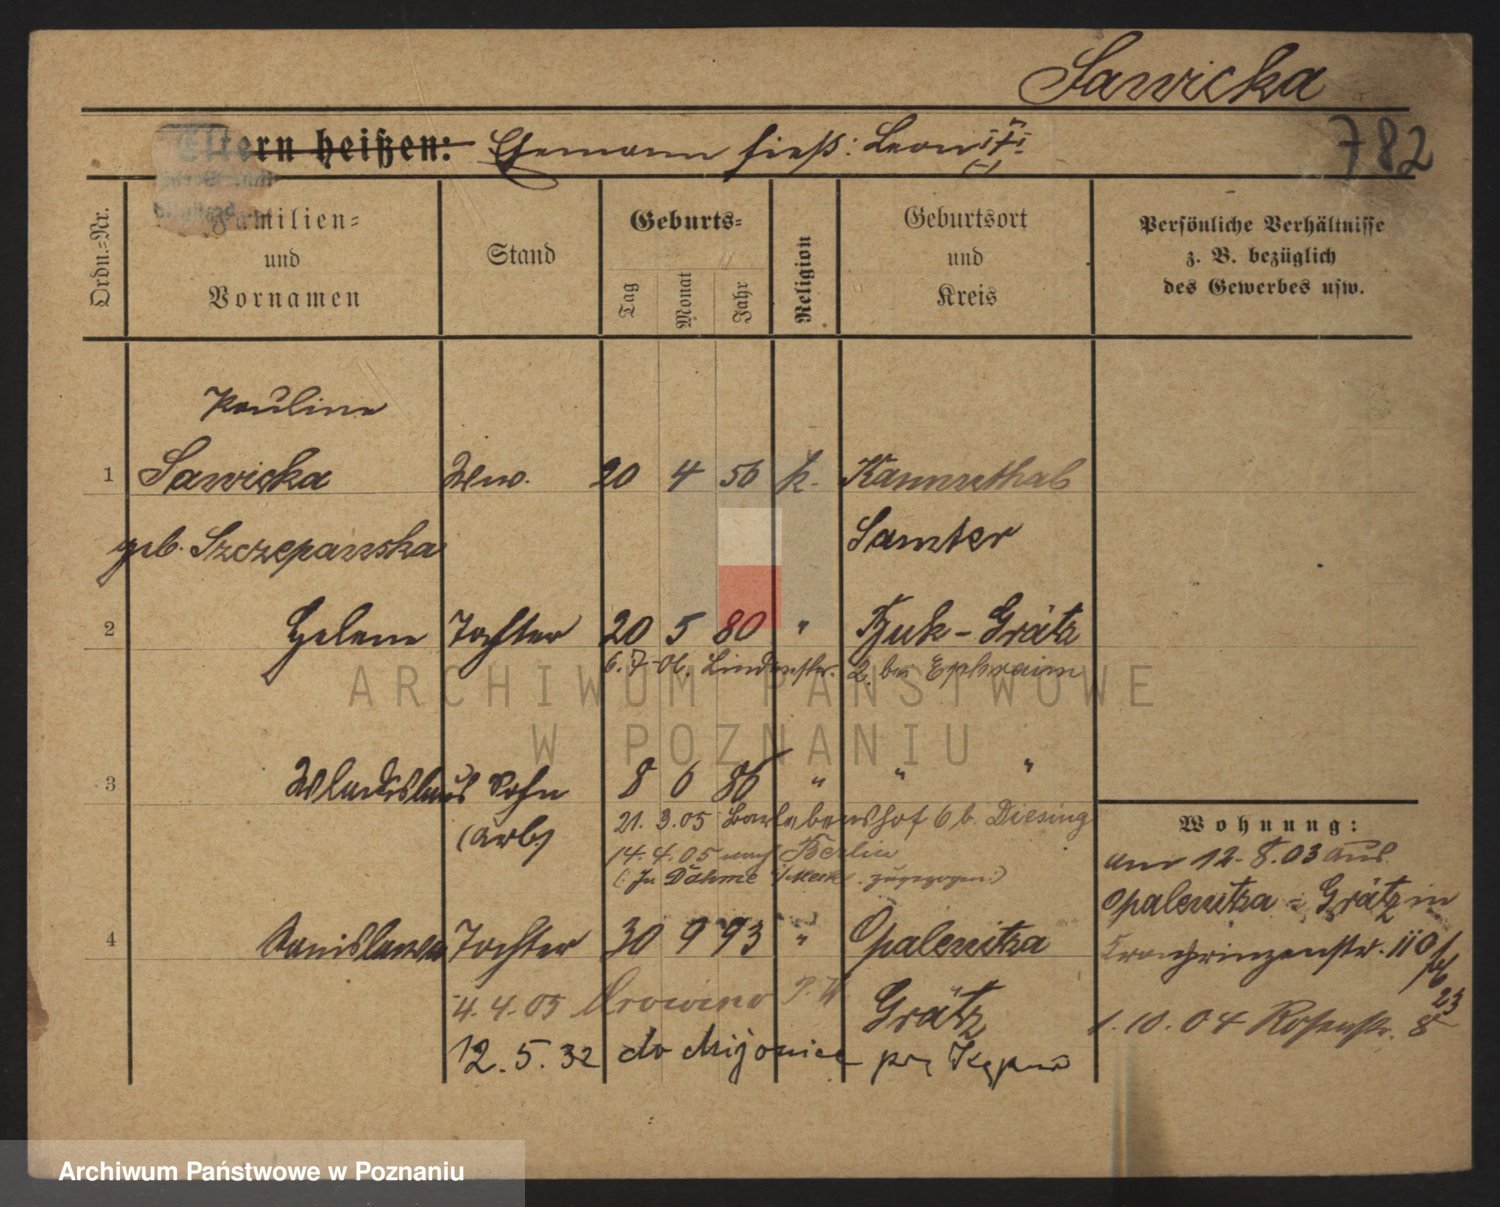 Sawicka
782
Eltern heißen: Ehemann hieß: Leon
Ordn.=Nr.
Familien=
und
Vornamen
Stand
Geburts=
Tag
Monat
Jahr
Religion
Geburtsort
und
Kreis
Persönliche Verhältnisse
z. B. bezüglich
des Gewerbes usw.
Pauline
1 Sawicka Wwe. 20 4 56 k.
geb. Szczepanska Samter
2 Helene Tochter 20 5 80 " Buk - Grätz
6. 7. 06. Lindenstr. 2. bei Ephraim
3 Wladislaus Sohn 8 6 86 " " "
(Arb.)
21. 3. 05 Barlebenshof 6 b. Diesing
14. 4. 05 nach Berlin
(: In Dahme zugezogen:)
4 Stanislawa Tochter 30 9 93 " Opalenitza
4. 4. 05 Grätz
12. 5. 32 do
Wohnung:
am 12. 8. 03 aus
Opalenitza - Grätz in
Kronprinzenstr. 110
23
1. 10. 04 Rosenstr. 8
ARCHIWUM PAŃSTWOWE
W POZNANIU
Archiwum Państwowe w Poznaniu